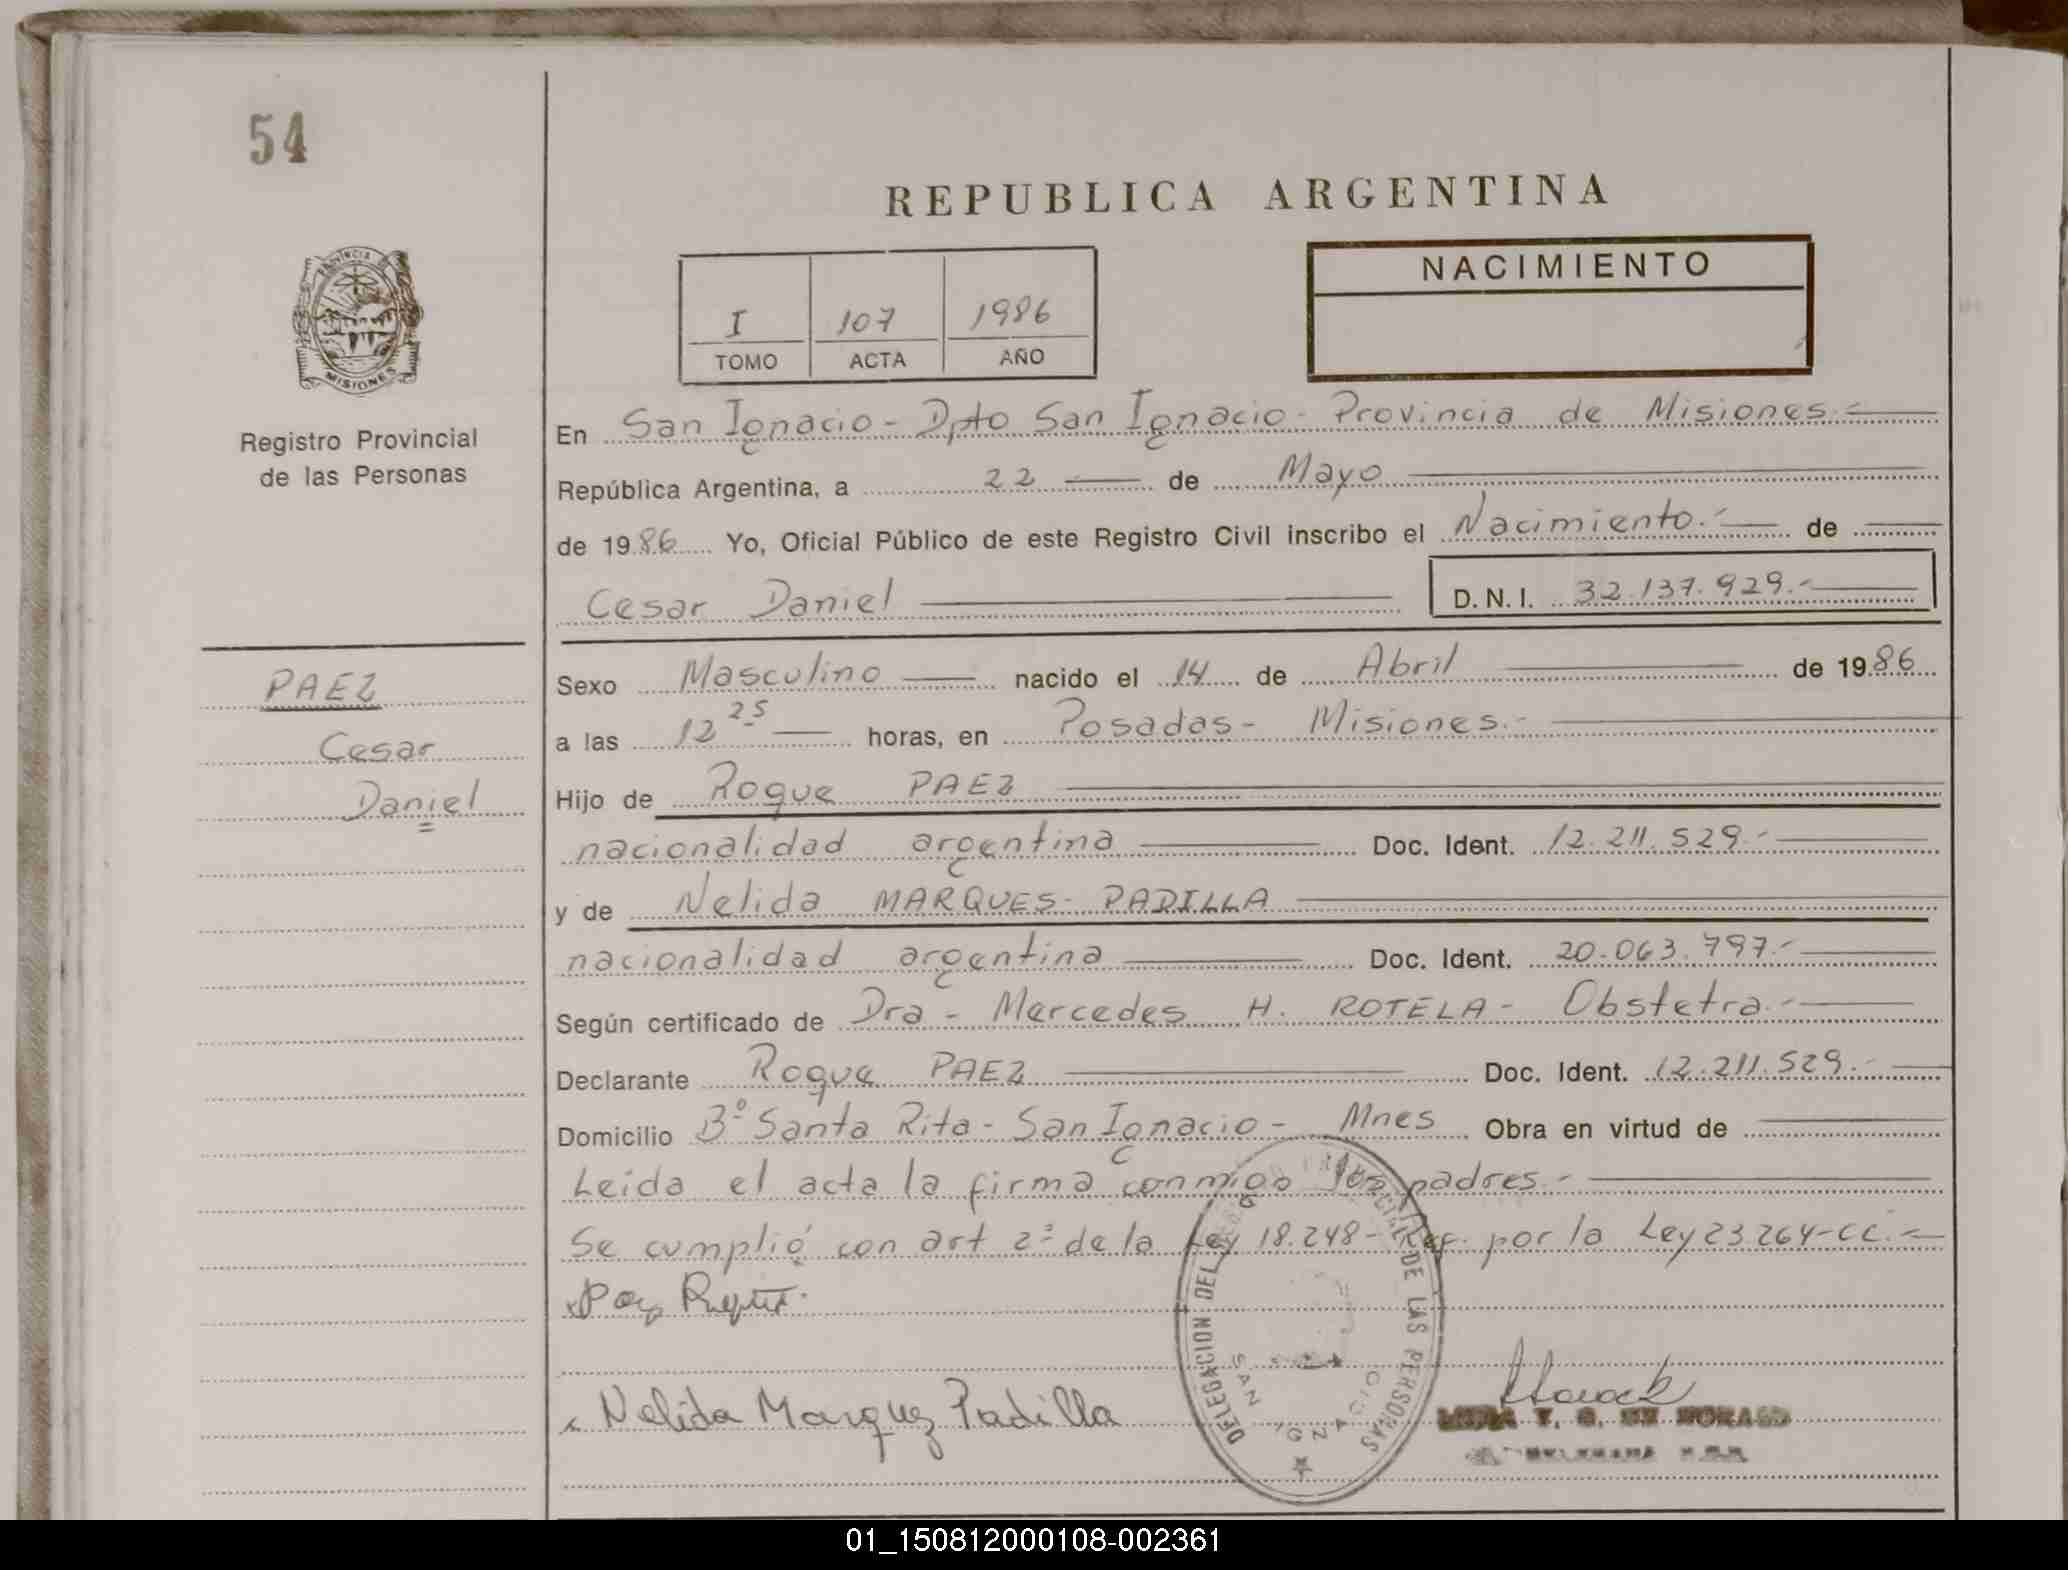 54
REPUBLICA ARGENTINA
PROVINCIA DE
MISIONES
Registro Provincial
de las Personas
NACIMIENTO
I 107 1986
TOMO ACTA AÑO
En San Ignacio - Dpto San Ignacio - Provincia de Misiones.-
República Argentina, a 22 de Mayo
de 1986 Yo, Oficial Público de este Registro Civil inscribo el Nacimiento.- de
Cesar Daniel D. N. I. 32.137.929.-
PAEZ
Cesar
Daniel
Sexo Masculino nacido el 14 de Abril de 1986
a las 12 25 horas, en Posadas - Misiones.-
Hijo de Roque PAEZ
nacionalidad argentina Doc. Ident. 12.211.529.-
y de Nelida MARQUES - PADILLA
nacionalidad argentina Doc. Ident. 20.063.797.-
Según certificado de Dra - Mercedes H. ROTELA - Obstetra.-
Declarante Roque PAEZ Doc. Ident. 12.211.529.-
Domicilio B° Santa Rita - San Ignacio - Mnes Obra en virtud de
Leida el acta la firma conmigo los padres.-
Se cumplió con art 2° de la Ley 18.248 - Ref. por la Ley 23.264-CC.-
Nelida Marquez Padilla
DELEGACION DEL REGISTRO PROVINCIAL DE LAS PERSONAS
SAN IGNACIO
01_150812000108-002361